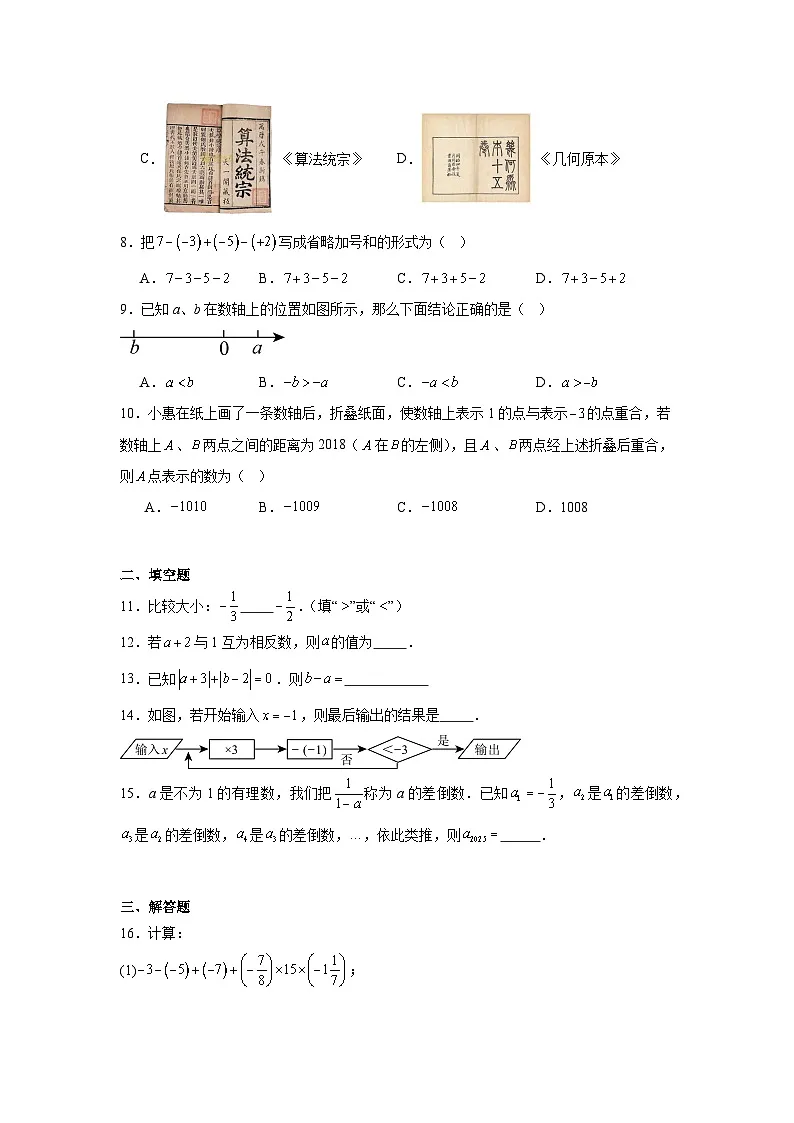 C. 算法統宗 《算法统宗》 D. 幾何原本十五卷 《几何原本》
8.把7-(-3)+(-5)-(+2)写成省略加号和的形式为( )
A.7-3-5-2 B.7+3-5-2 C.7+3+5-2 D.7+3-5+2
9.已知a、b在数轴上的位置如图所示,那么下面结论正确的是( )
b 0 a
A.a<b B.-b>-a C.-a<b D.a>-b
10.小惠在纸上画了一条数轴后,折叠纸面,使数轴上表示1的点与表示-3的点重合,若
数轴上A、B两点之间的距离为2018(A在B的左侧),且A、B两点经上述折叠后重合,
则A点表示的数为( )
A.-1010 B.-1009 C.-1008 D.1008
二、填空题
11.比较大小:-1/3 _____ -1/2.(填“>”或“<”)
12.若a+2与1互为相反数,则a的值为_____.
13.已知|a+3|+|b-2|=0.则b-a=_____
14.如图,若开始输入x=-1,则最后输出的结果是_____.
输入x ×3 -(-1) 否 <-3 是 输出
15.a是不为1的有理数,我们把1/(1-a)称为a的差倒数.已知a₁=-1/3,a₂是a₁的差倒数,
a₃是a₂的差倒数,a₄是a₃的差倒数,…,依此类推,则a₂₀₂₅=______.
三、解答题
16.计算:
(1)-3-(-5)+(-7)+(-7/8)×15×(-1 1/7);